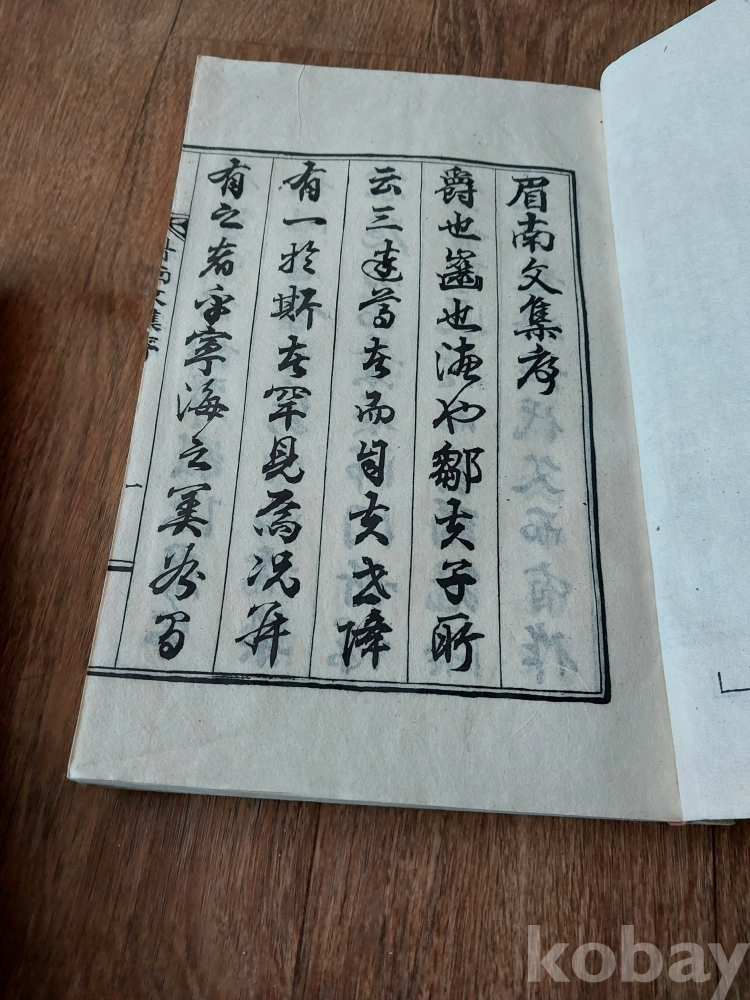 眉南文集序
爵也齒也德也鄒夫子所
云三達尊者而自夫世降
有一於斯者罕見焉況并
有之者乎寧海之
南文集序
一
kobay